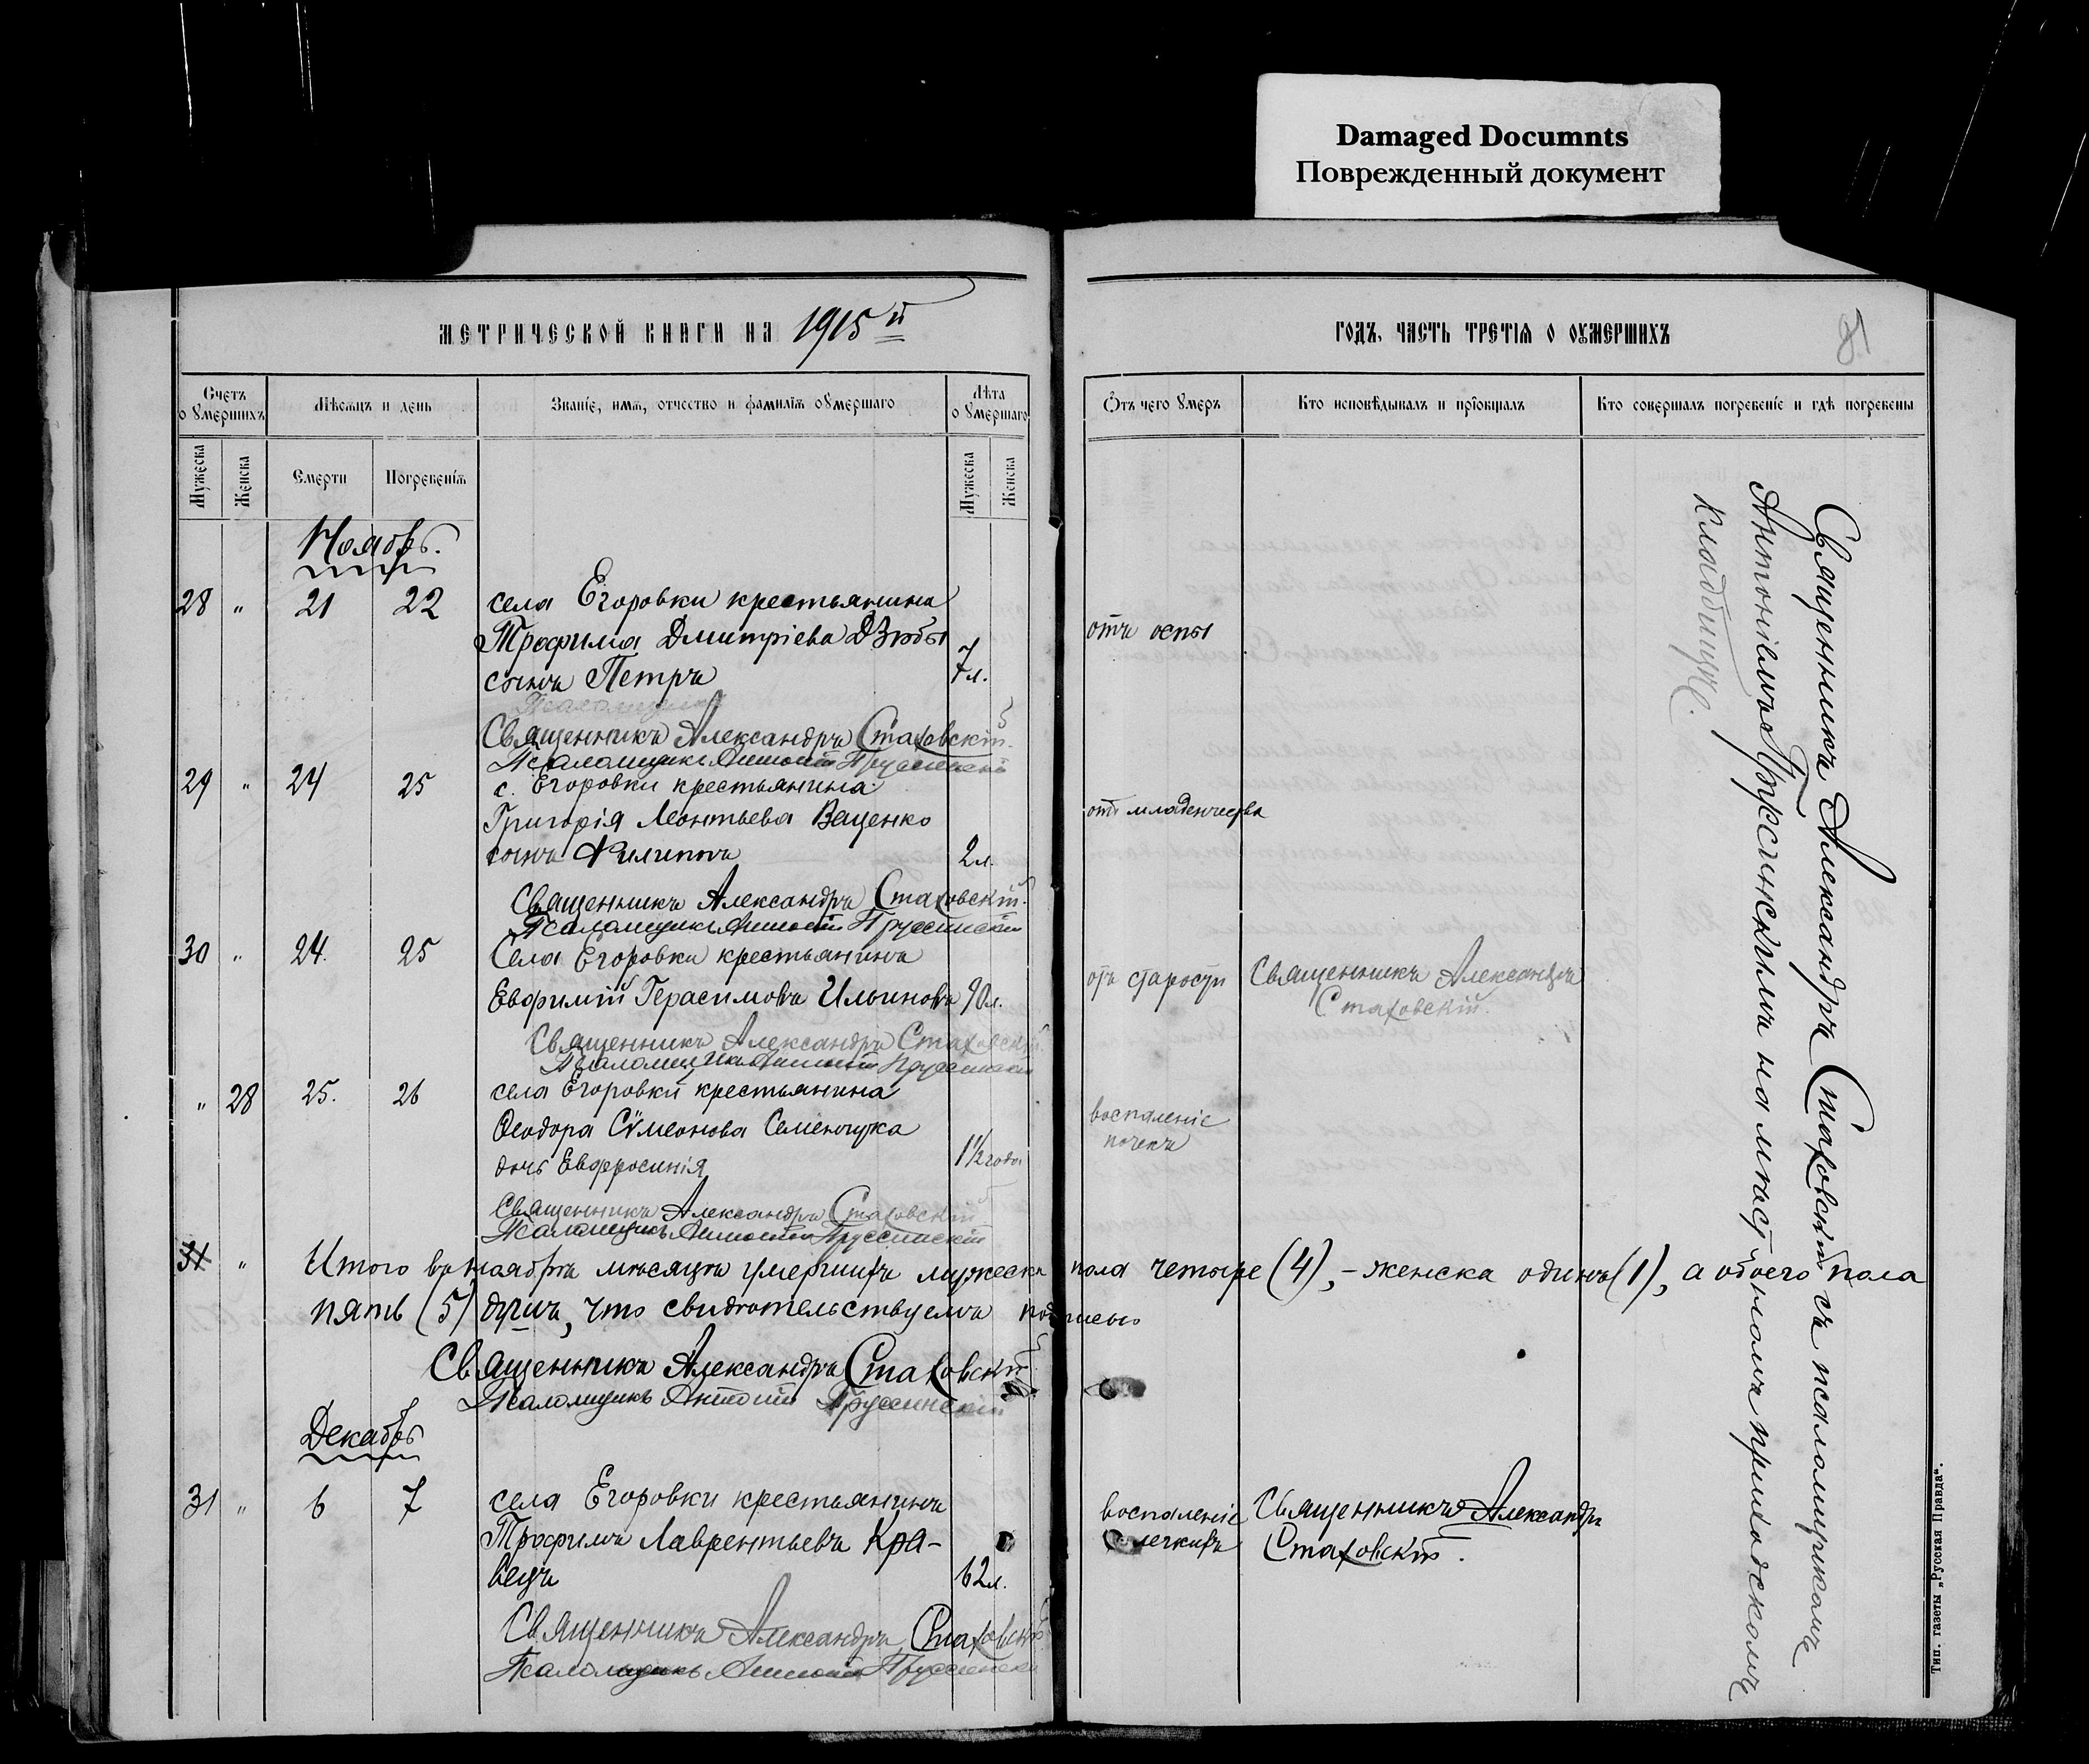 Damaged Documnts
Поврежденный документ
МЕТРИЧЕСКОЙ КНИГИ НА 1915й
ГОДЪ, ЧАСТЬ ТРЕТІѦ О ОУМЕРШИХЪ
Счетъ о умершихъ
Мѣсѧцъ и день
Званіе, имѧ, отчество и фамиліѧ оумершаго
Лѣта оумершаго
Ѿтъ чего умеръ
Кто исповѣдывалъ и пріобщалъ
Кто совершалъ погребеніе и гдѣ погребены
Мужеска
Женска
Смерти
Погребеніѧ
Мужеска
Женска
Ноябрь.
28 " 21 22 села Егоровки крестьянина
Трофима Дмитріева Дзюбы отъ оспы
сынъ Петръ 7 л.
Священникъ Александръ Стаховскій.
Псаломщикъ Антоній Пруссинскій
29 " 24 25 с. Егоровки крестьянина
Григорія Леонтьева Ващенко отъ младенчества
сынъ Филиппъ 2 л.
Священникъ Александръ Стаховскій.
Псаломщикъ Антоній Пруссинскій
30 " 24. 25 Села Егоровки крестьянинъ
Евфимій Герасимовъ Ильиновъ 90 л. отъ старости Священникъ Александръ
Стаховскій.
Священникъ Александръ Стаховскій.
Псаломщикъ Антоній Пруссинскій
" 28 25. 26 села Егоровки крестьянина
Ѳеодора Сѵмеонова Семенчука воспаленіе
дочь Евфросинія 1 1/2 года почекъ
Священникъ Александръ Стаховскій
Псаломщикъ Антоній Пруссинскій
31 " Итого въ ноябрѣ мѣсяцѣ умершихъ мужеска пола четыре (4), – женска одинъ (1), а обоего пола
пять (5) душъ, что свидѣтельствуемъ подписью
Священникъ Александръ Стаховскій
Псаломщикъ Антоній Пруссинскій
Декабрь
31 " 6 7 села Егоровки крестьянинъ воспаленіе Священникъ Александръ
Трофимъ Лаврентьевъ Кра- легкихъ Стаховскій.
вецъ 62 л.
Священникъ Александръ Стаховскій
Псаломщикъ Антоній Пруссинскій
Священникъ Александръ Стаховскій съ псаломщикомъ
Антоніемъ Пруссинскимъ на мѣстномъ приходскомъ
кладбищѣ.
Тип. газеты „Русская Правда“.